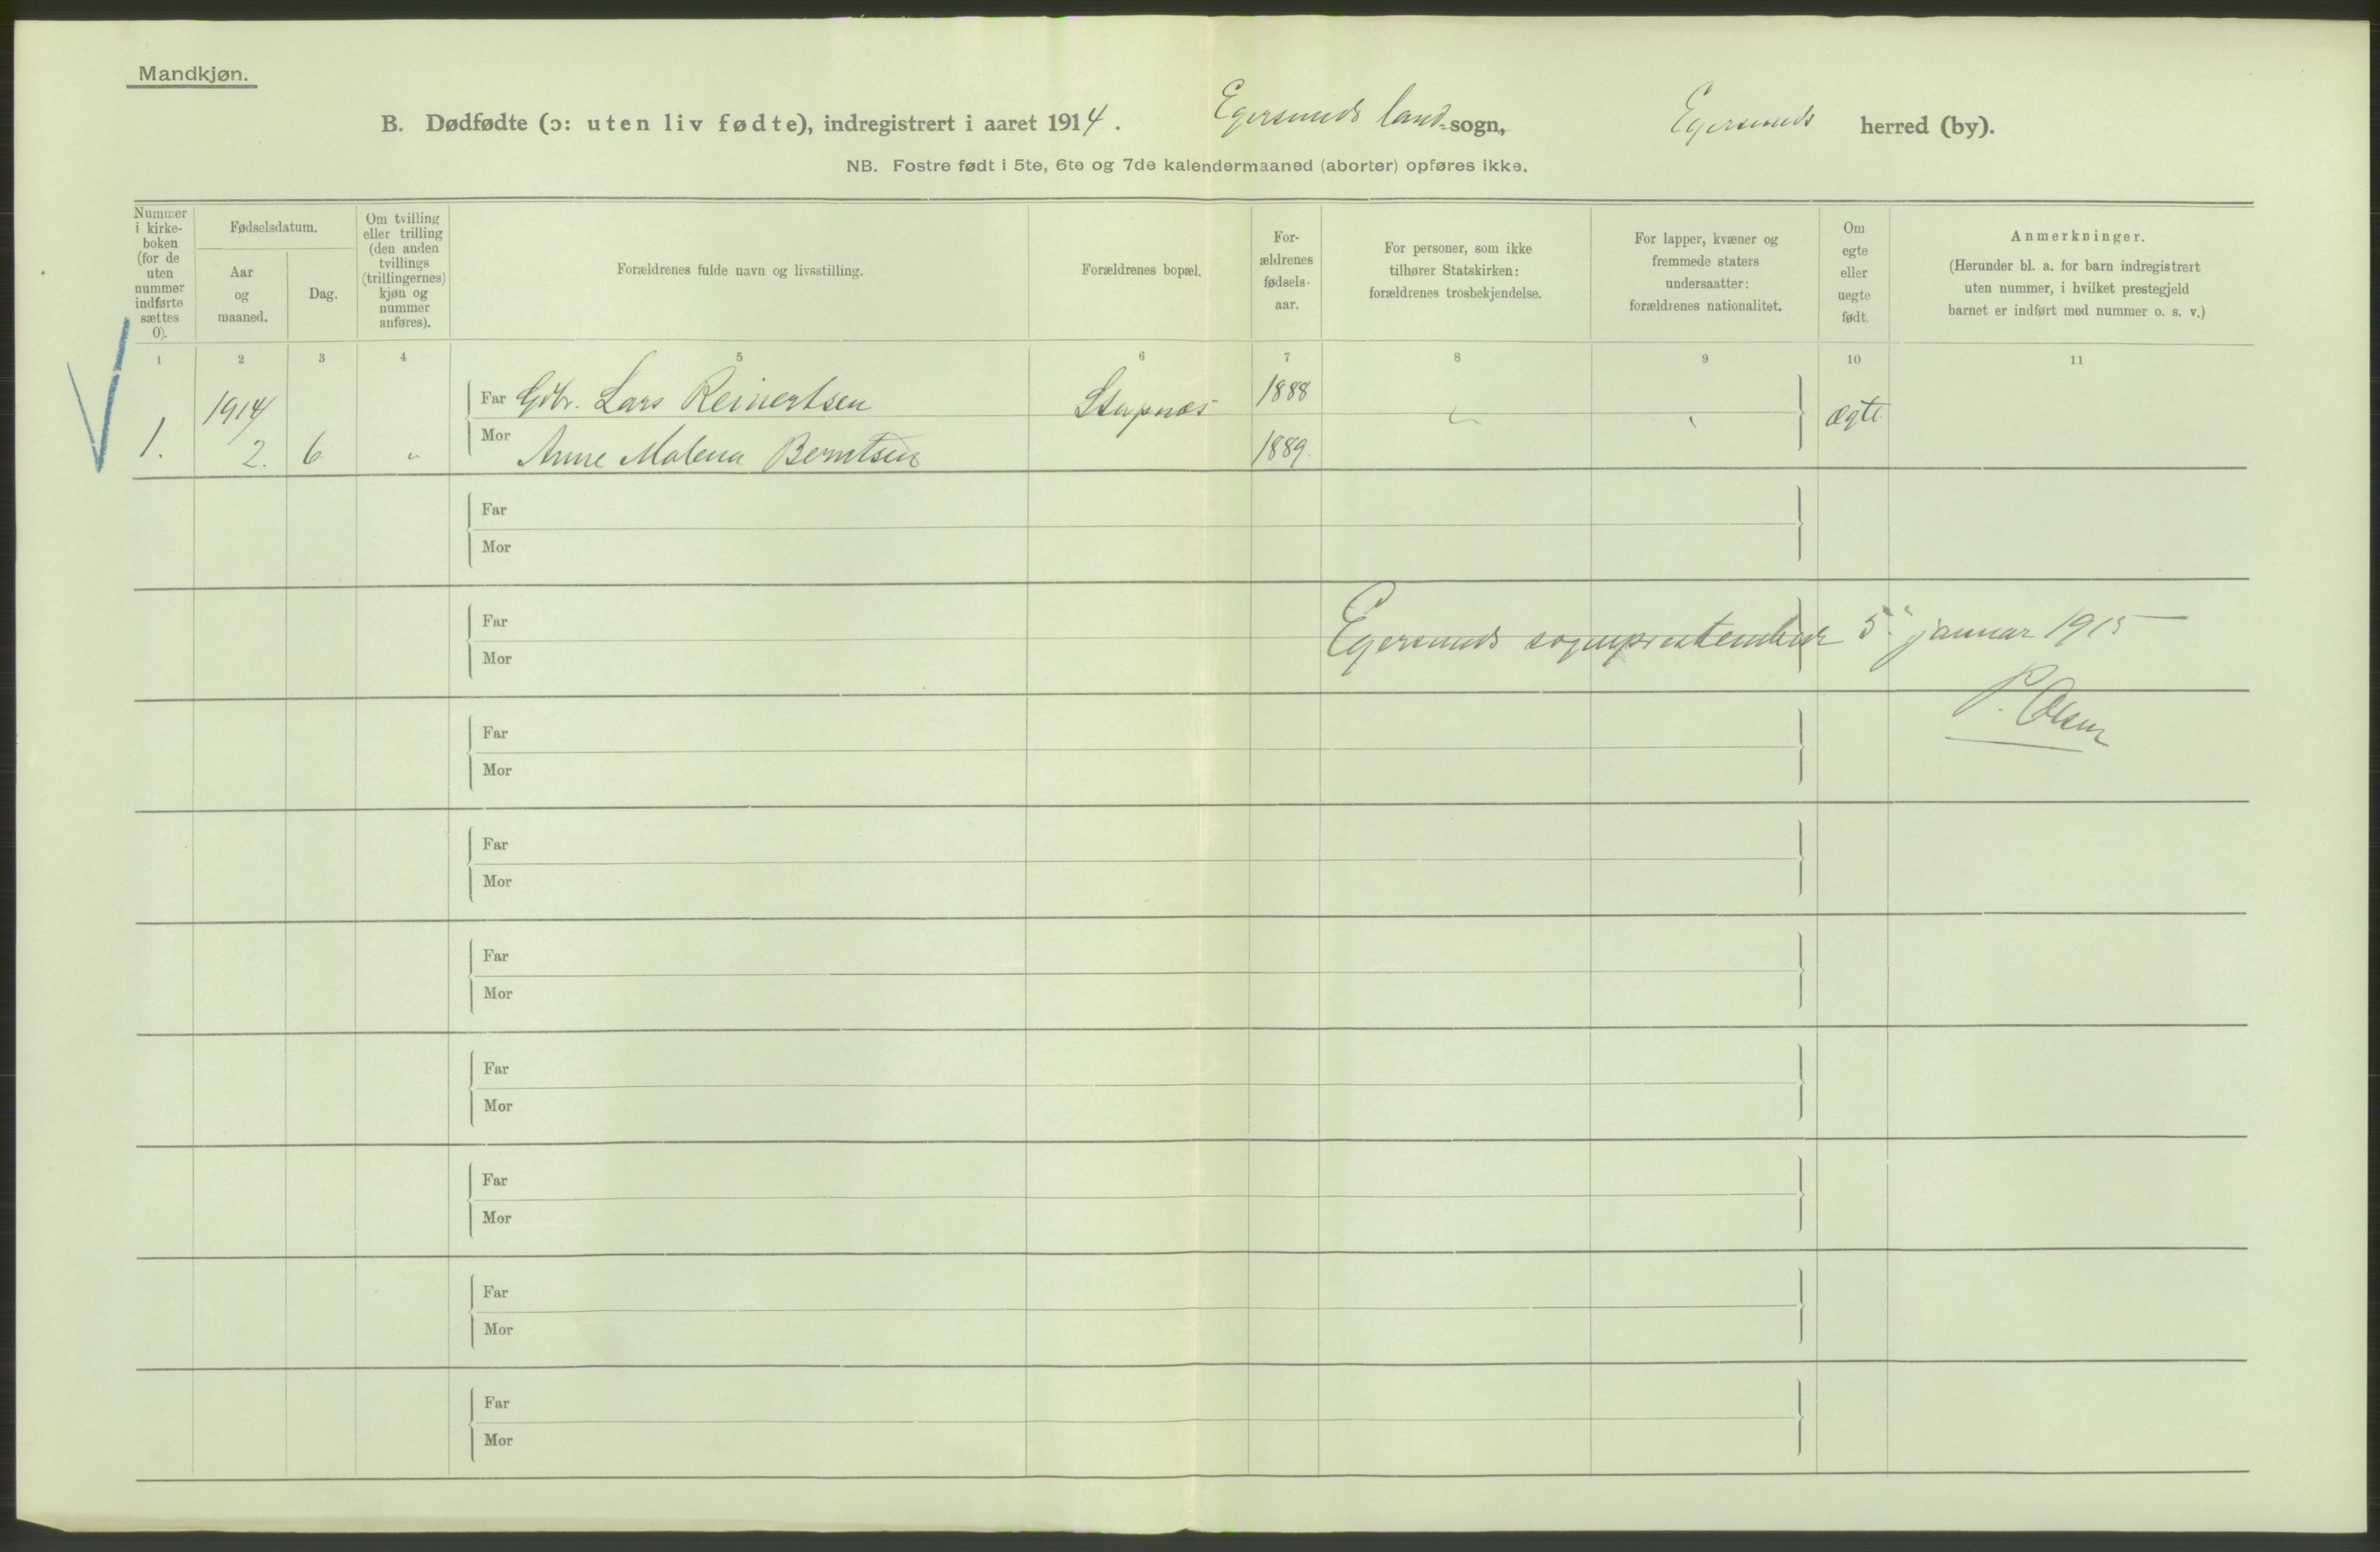 Mandkjøn.
B. Dødfødte (ɔ: uten liv fødte), indregistrert i aaret 1914. Egersunds land-sogn, Egersunds herred (by).
NB. Fostre født i 5te, 6te og 7de kalendermaaned (aborter) opføres ikke.
Nummer
i kirke-
boken
(for de
uten
nummer
indførte
sættes
0).
Fødselsdatum.
Aar
og
maaned.
Dag.
Om tvilling
eller trilling
(den anden
tvillings
(trillingernes)
kjøn og
nummer
anføres).
Forældrenes fulde navn og livsstilling.
Forældrenes bopæl.
For-
ældrenes
fødsels-
aar.
For personer, som ikke
tilhører Statskirken:
forældrenes trosbekjendelse.
For lapper, kvæner og
fremmede staters
undersaatter:
forældrenes nationalitet.
Om
egte
eller
uegte
født.
Anmerkninger.
(Herunder bl. a. for barn indregistrert
uten nummer, i hvilket prestegjeld
barnet er indført med nummer o. s. v.)
1 2 3 4 5 6 7 8 9 10 11
1914
Far Gdbr. Lars Reinertsen Stapnes 1888
ægte
1. 2. 6 " Mor Anne Malena Berntsen 1889.
Far
Mor
Far
Egersunds sogneprestembede 5. januar 1915
Mor
P. Olsen
Far
Mor
Far
Mor
Far
Mor
Far
Mor
Far
Mor
Far
Mor
Far
Mor